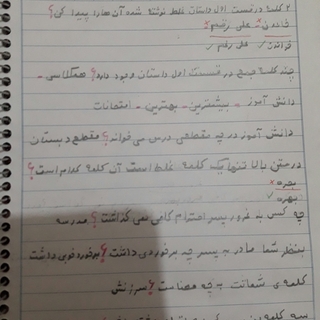 ۲ کلمه در قسمت اول داستان غلط نوشته شده آن ها را پیدا کن؟
خاندن × علی رقم ×
خواندن ✓ علی رغم ✓
چند کلمه جمع در قسمت اول داستان وجود دارد؟ همکلاسی -
دانش آموز - بیشترین - بهترین - امتحانات
دانش آموز در چه مقطعی درس می خواند؟ مقطع دبستان
در متن بالا تنها یک کلمه غلط است آن کلمه کدام است؟
بحره ×
بهره ✓
چه کسی به غرور پسر احترام کافی نمی گذاشت؟ مدرسه
بنظر شما مادر با پسر چه برخوردی داشت؟ برخورد خوبی داشت
کلمه ی شماتت به چه معنا ست؟ سرزنش
سه کلمه